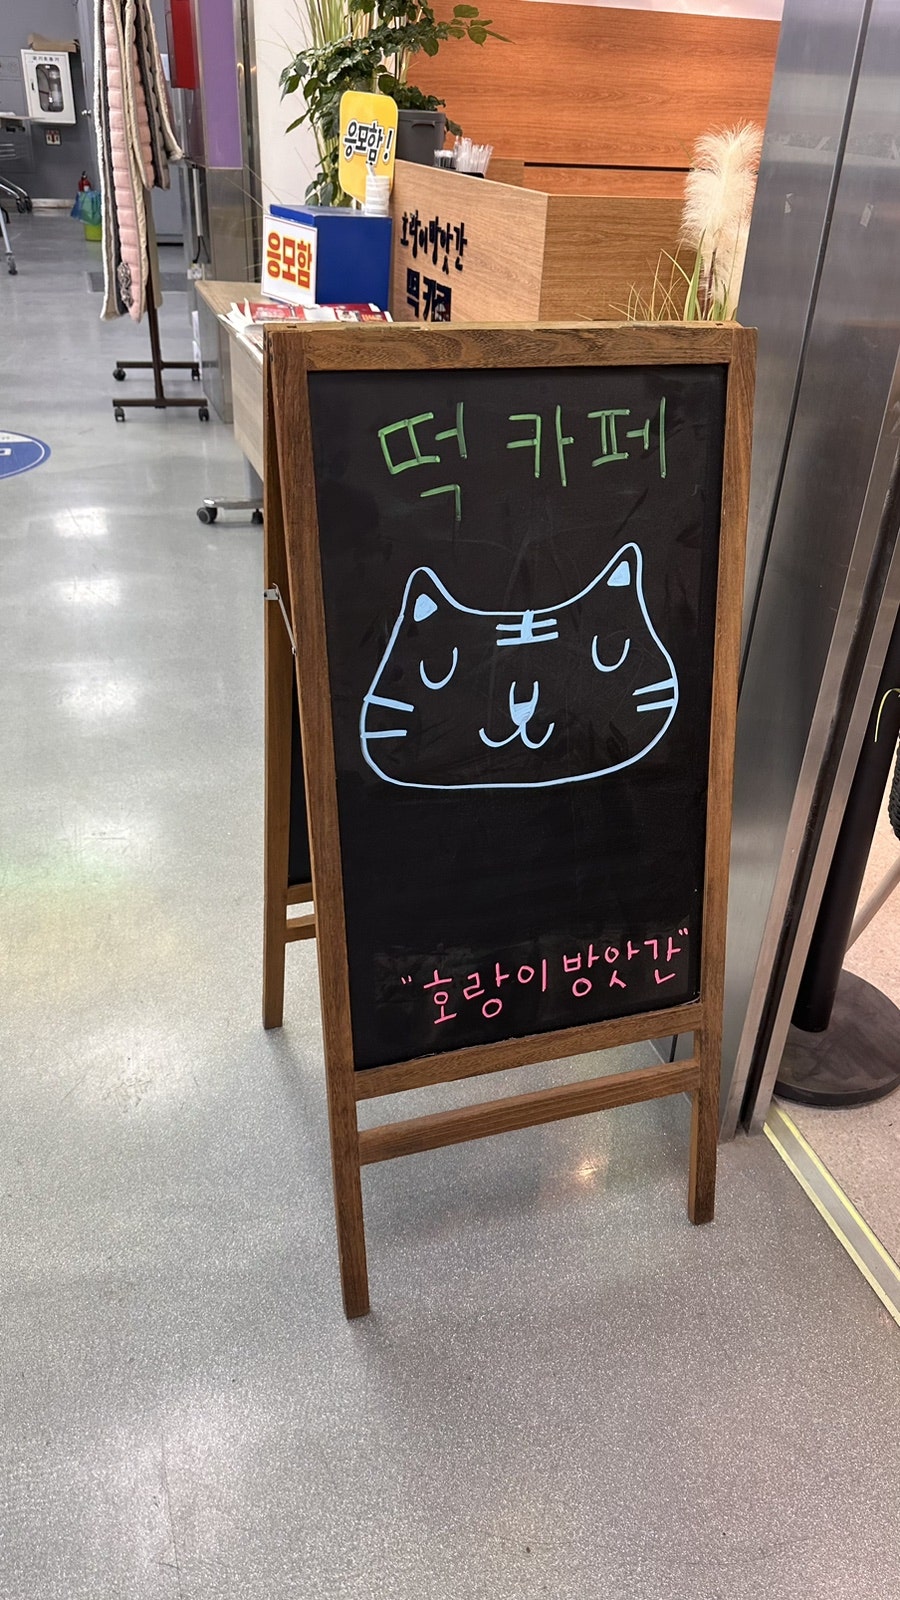 응모함!
응모함
호랑이방앗간
떡카페
떡 카페
"호랑이 방앗간"